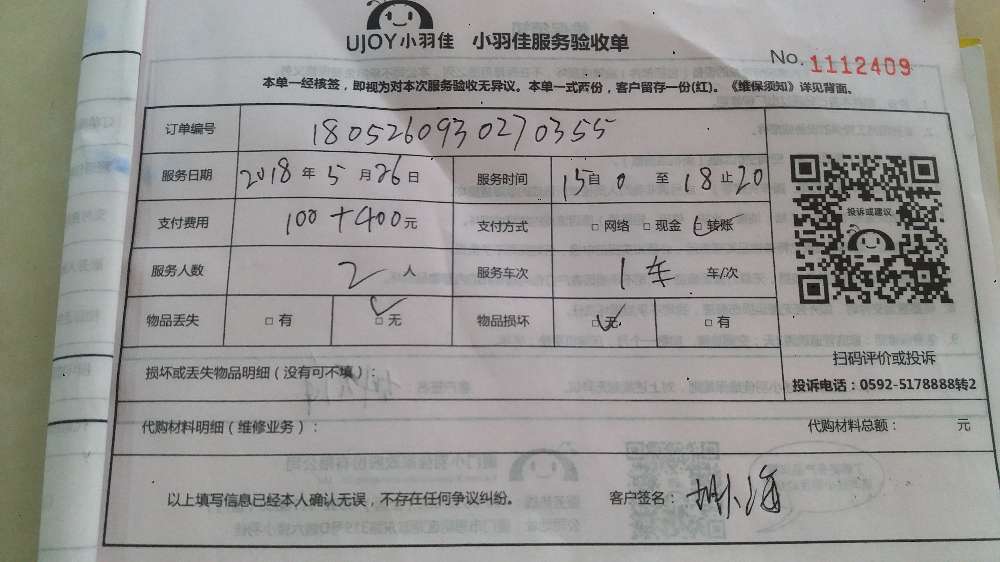 UJOY小羽佳 小羽佳服务验收单
No. 1112409
本单一经核签，即视为对本次服务验收无异议。本单一式两份，客户留存一份(红)。《维保须知》详见背面。
订单编号 1805260930270355
服务日期 2018 年 5 月 26 日 服务时间 15 自 0 至 18 止 20
支付费用 100+400元 支付方式 □ 网络 □ 现金 □ 转账
投诉或建议
服务人数 2 人 服务车次 1车 车/次
物品丢失 □ 有 □ 无 物品损坏 □ 无 □ 有
扫码评价或投诉
损坏或丢失物品明细（没有可不填）：
投诉电话：0592-5178888转2
代购材料明细（维修业务）： 代购材料总额： 元
以上填写信息已经本人确认无误，不存在任何争议纠纷。 客户签名：